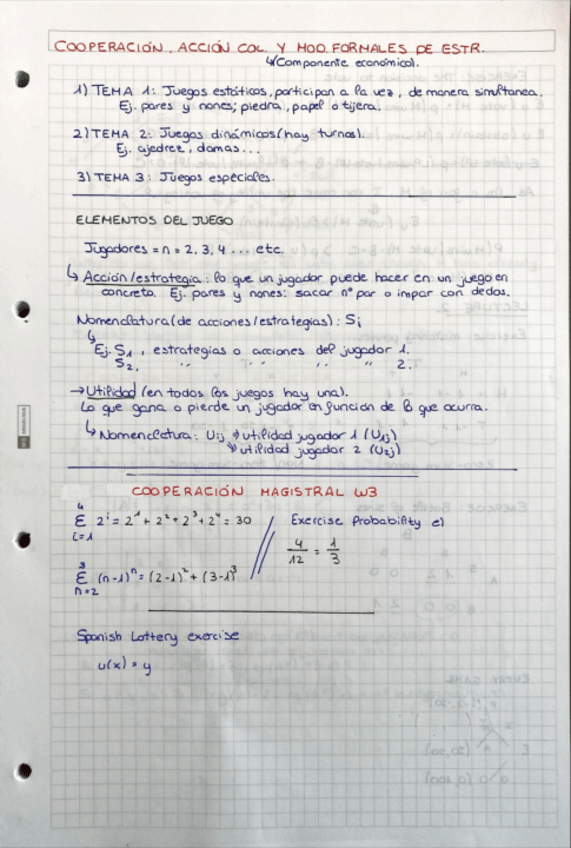 COOPERACIÓN, ACCIÓN COL. Y MOD. FORMALES DE ESTR.
↳(Componente económico).
1) TEMA 1: Juegos estáticos, participan a la vez, de manera simultanea.
Ej. pares y nones; piedra, papel o tijera.
2) TEMA 2: Juegos dinámicos (hay turnos).
Ej. ajedrez, damas...
3) TEMA 3: Juegos especiales.
ELEMENTOS DEL JUEGO
Jugadores = n = 2, 3, 4 ... etc.
↳ Acción/estrategia: lo que un jugador puede hacer en un juego en
concreto. Ej. pares y nones: sacar nº par o impar con dedos.
Nomenclatura (de acciones/estrategias): Si
↳
Ej. S1, estrategias o acciones del jugador 1.
S2, " " " " 2.
→ Utilidad (en todos los juegos hay una).
Lo que gana o pierde un jugador en función de lo que ocurra.
↳ Nomenclatura: Uij → utilidad jugador 1 (U1j)
→ utilidad jugador 2 (U2j)
COOPERACIÓN MAGISTRAL W3
4
Σ 2^i = 2^1 + 2^2 + 2^3 + 2^4 = 30 // Exercise Probability e)
i=1
4/12 = 1/3
3
Σ (n-1)^n = (2-1)^2 + (3-1)^3
n=2
Spanish Lottery exercise
u(x) = y